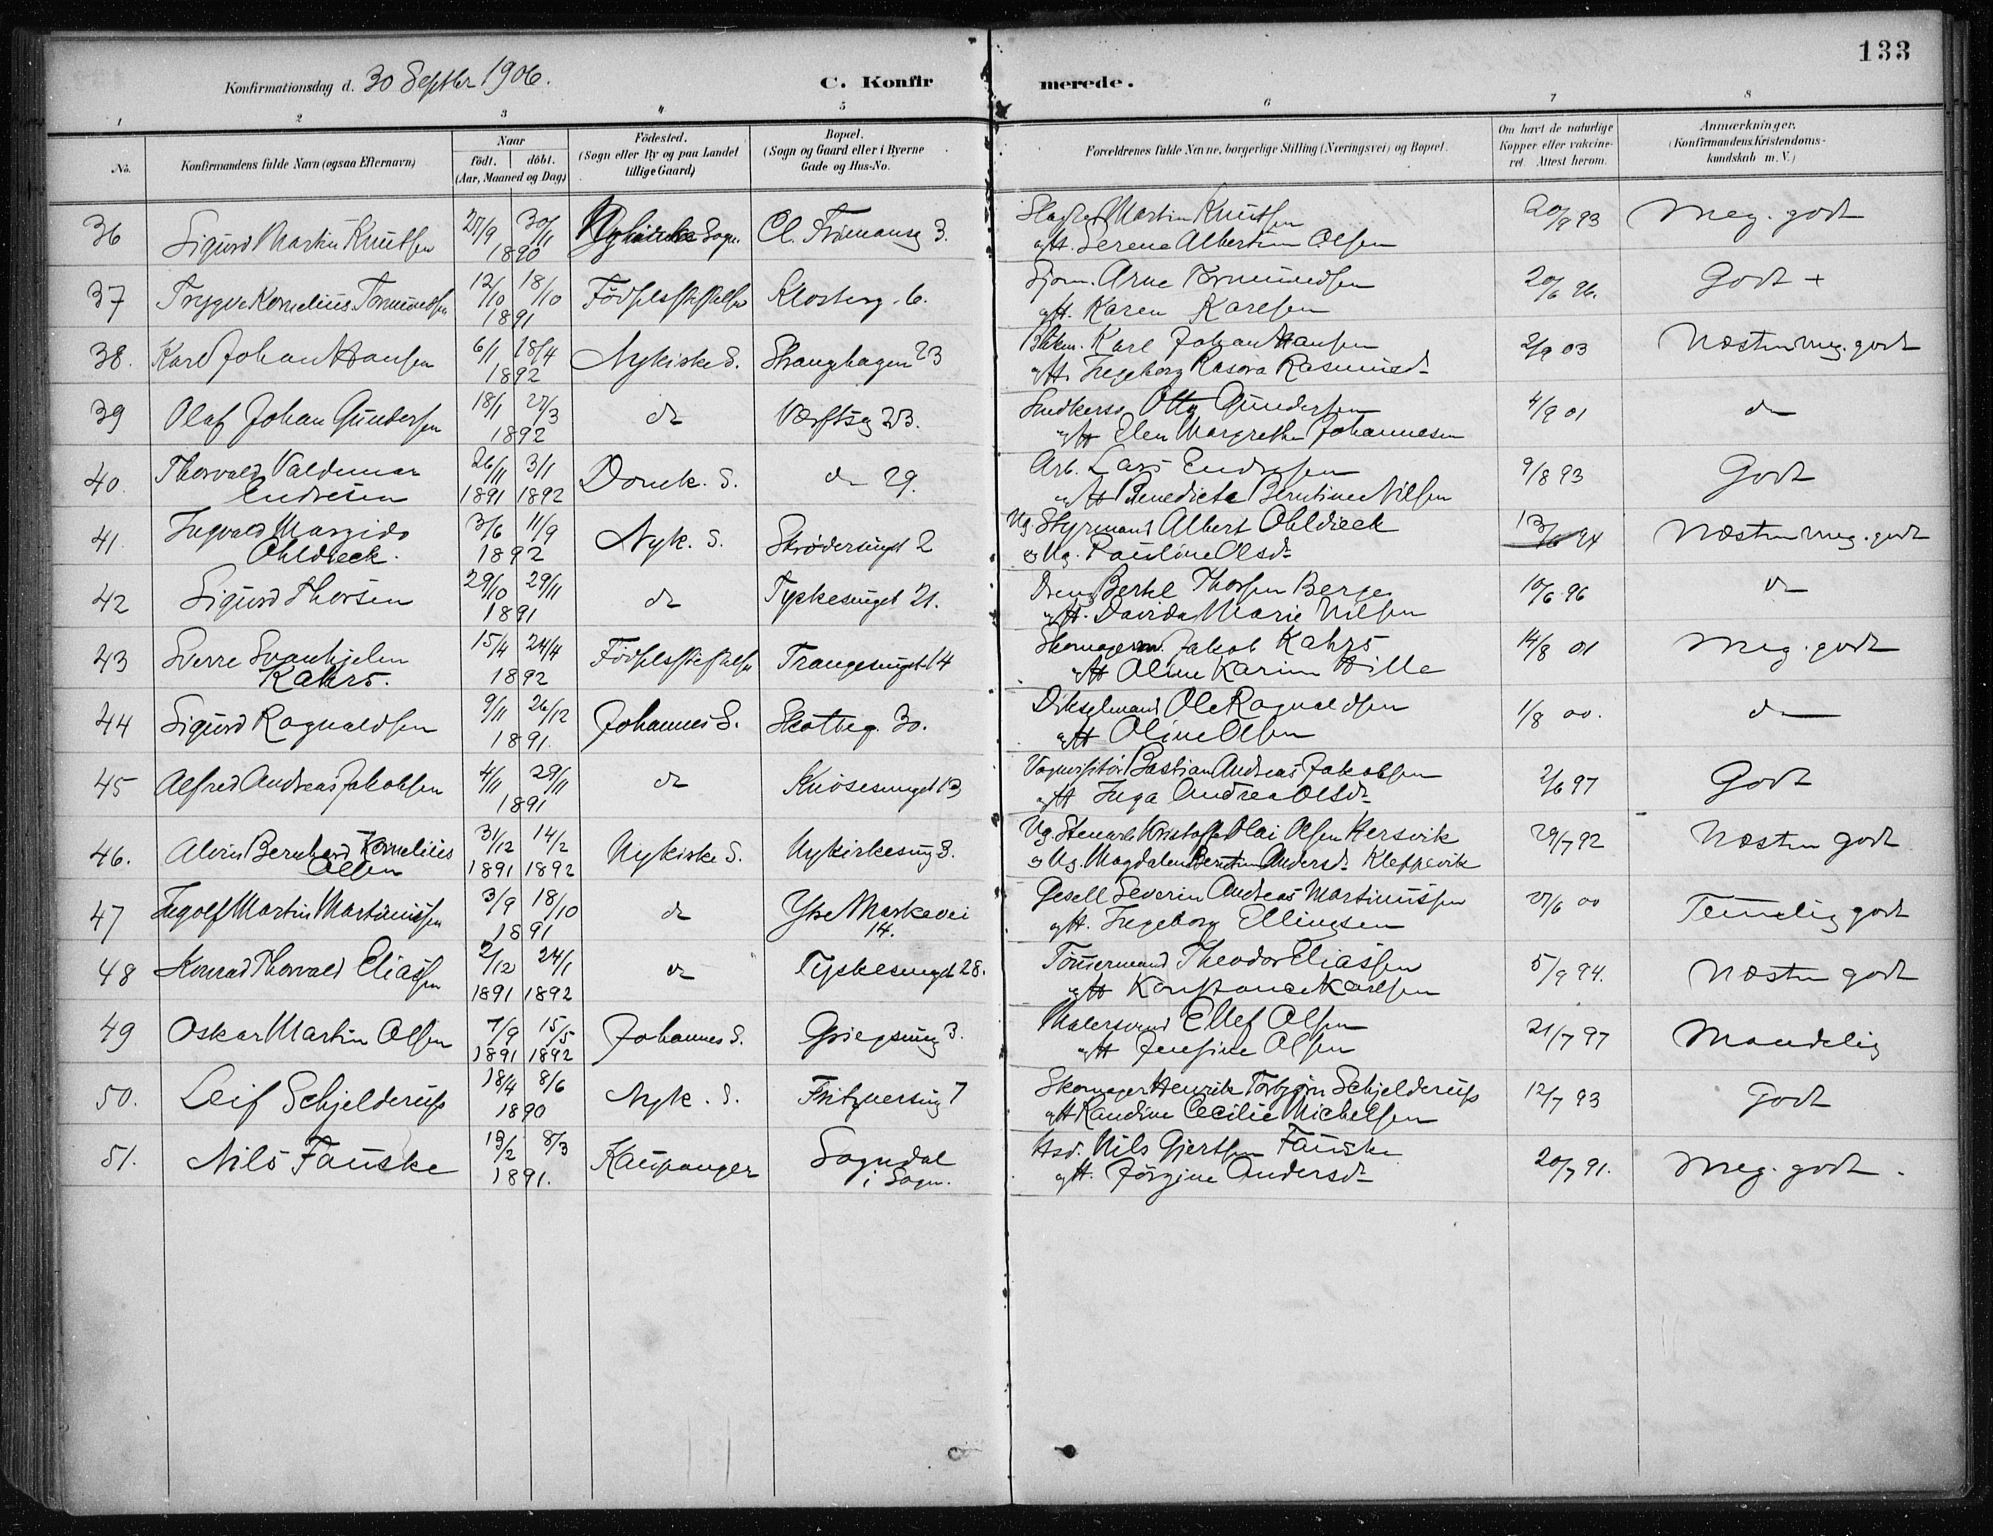 133
Konfirmationsdag d. 30 Septbr 1906.
C. Konfirmerede.
1 2 3 4 5 6 7 8
No. | Konfirmandens fulde Navn (ogsaa Efternavn) | Naar födt. | döbt. (Aar, Maaned og Dag) | Födested. (Sogn eller By og paa Landet tillige Gaard) | Bopæl. (Sogn og Gaard eller i Byerne Gade og Hus-No. | Forældrenes fulde Navne, borgerlige Stilling (Næringsvei) og Bopæl. | Om havt de naturlige Kopper eller vakcineret. Attest herom. | Anmærkninger. (Konfirmandens Kristendomskundskab m. V.)
36 Sigurd Martin Knutsen 27/9 30/11 1890 Nykirke Sogn. Cl. 3. Martin Knutsen 20/9 93 Meg. godt
og H. Serene Albertine Olsen
37 Trygve Kornelius Tormundsen 12/10 18/10 1891 Födselsstiftelsen Klosterg. 6. Sjøm. Arne Tormundsen 20/6 96. Godt +
og H. Karen Karlsen
38. Karl Johan Hansen 6/1 18/4 1892 Nykirke S. Strangehagen 23 Karl Johan Hansen 2/9 03 Næsten meg. godt
og H. Ingeborg Rasmusd.
39 Olaf Johan Gundersen 18/1 27/3 1892 do Værftsg 23. Snedkersv. Otto Gundersen 4/9 01 do
og H Elen Margrethe Johannesen
40. Thorvald Valdemar Endresen 26/11 1891 3/1 1892 Domk. S. do 29. Arb. Lars Endresen 9/8 93 Godt
og H Benedicte Berntine Nilsen
41. Ingvald Margido Ohldieck. 3/6 11/9 1892 Nyk. S. Skrødersmuget 2 Ug. Styrmand Albert Ohldieck 13/6 94 Næsten meg. godt
og Ug. Pauline Olsd.
42 Sigurd Thorsen 29/10 29/11 1891 do Tyskesmuget 21. Dreng Bertel Thorsen Berge 10/6 96 do
og H. Davida Marie Nilsen
43 Sverre Svanhjelm Kahrs. 15/4 24/4 1892 Födselsstiftelsen Trangesmuget 14 Skomagerm. Jakob Kahrs 14/8 01 Meg. godt
og H Oline Karine Hille
44 Sigurd Ragnvaldsen 9/11 26/12 1891. Johannes S. Skotteg. 30. Ole Ragnvaldsen 1/8 00. do
og H Oline Olsen
45 Alfred Andreas Jakobsen 4/11 29/11 1891 do Knøsesmuget 13 Bastian Andreas Jakobsen 2/6 97 Godt
og H Inga Andrea Olsd.
46. Alvin Bernhard Kornelius Olsen 31/12 1891 14/2 1892 Nykirke S. Nykirkesmug 3. Ug. Steward Kristoffer Olai Olsen Hersvik 29/7 92 Næsten godt
og Ug. Magdalene Berntine Andersd. Kleppevik
47 Ingolf Martin Martinussen 3/9 18/10 1891 do Ytre Markevei 14. Gesell Severin Andreas Martinussen 27/6 00 Temmelig godt
og H. Ingeborg Ellingsen
48 Konrad Thorvald Eliassen 2/12 1891 24/1 1892 do Tyskesmuget 28. Tømmermand Theodor Eliassen 5/9 94. Næsten godt
og H Konstance Karlsen
49 Oskar Martin Olsen 7/9 1891 15/5 1892 Johannes S. Griegsmug 3. Malersvend Ellef Olsen 21/7 97 Maadelig
og H Jensine Olsen
50. Leif Schjelderup 18/4 8/6 1890 Nyk. S. Fritznersmug 7 Skomager Henrik Torbjørn Schjelderup 12/7 93 Godt
og H Randine Cecilie Michelsen
51. Nils Fauske 13/2 8/3 1891. Kaupanger Sogndal i Sogn. Hsd. Nils Gjertsen Fauske 20/7 91. Meg. godt.
og H. Jørgine Andersd.